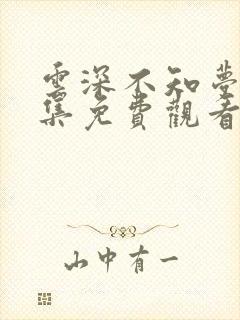 雲深不知夢
集免費觀看
山中有一